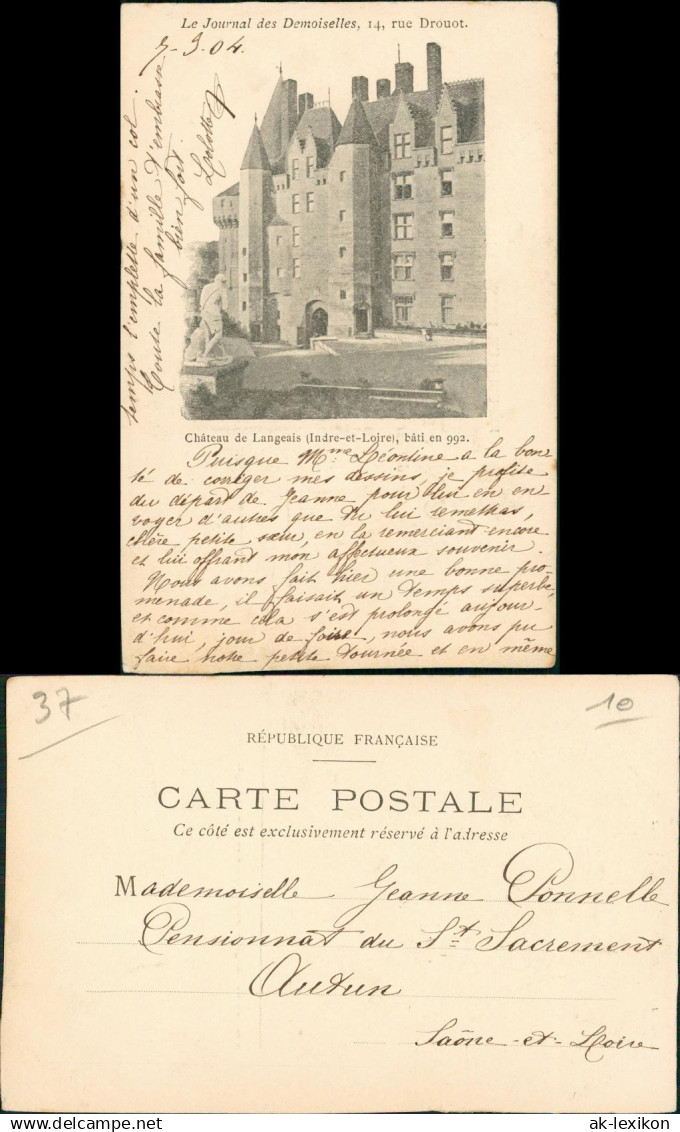 Le Journal des Demoiselles, 14, rue Drouot.
7-3-04.
Château de Langeais (Indre-et-Loire), bâti en 992.
Puisque Mme Léontine a la bon
té de corriger mes dessins, je profite
du départ de Jeanne pour lui en en
voyer d'autres que tu lui remettras,
chère petite sœur, en la remerciant encore
et lui offrant mon affectueux souvenir.
Nous avons fait hier une bonne pro-
menade, il faisait un temps superbe,
et comme cela s'est prolongé aujour-
d'hui, jour de foire, nous avons pu
faire notre petite tournée et en même
temps l'emplette d'un col.
Toute la famille t'embrasse
bien fort.
Lolotte
37
10
RÉPUBLIQUE FRANÇAISE
CARTE POSTALE
Ce côté est exclusivement réservé à l'adresse
Mademoiselle Jeanne Ponnelle
Pensionnat du St Sacrement
Autun
Saône-et-Loire
delcampe.net
ak-lexikon